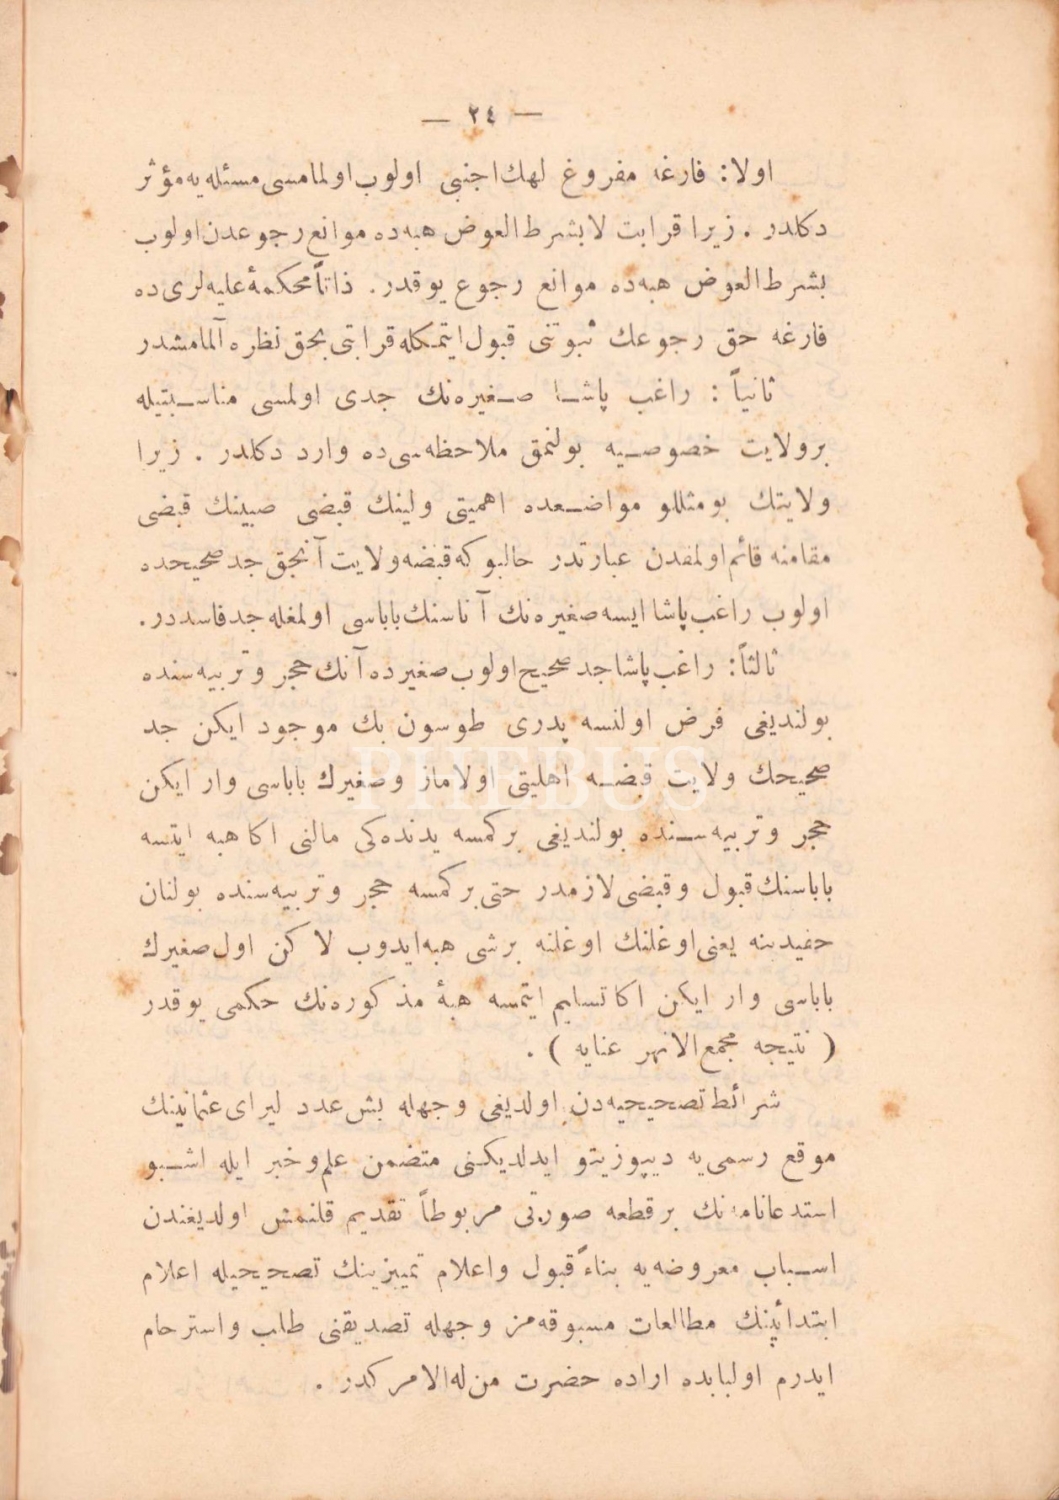 — ٢٤ —
اولا: فارغه مفروغ لهك اجنبی اولوب اولمامسی مسئله‌یه مؤثر
دكلدر . زیرا قرابت لا بشرط العوض هبه‌ده موانع رجوعدن اولوب
بشرط العوض هبه‌ده موانع رجوع یوقدر . ذاتاً محكمهٔ علیه‌لری‌ده
فارغه حق رجوعك ثبوتنی قبول ایتمكله قرابتی بحق نظره آلمامشدر
ثانیاً : راغب پاشا صغیره‌نك جدی اولمسی مناسبتیله
برولایت خصوصیه بولنمق ملاحظه‌سی‌ده وارد دكلدر . زیرا
ولایتك بومثللو مواضعده اهمیتی ولینك قبضی صبینك قبضی
مقامنه قائم اولمفدن عبارتدر حالبوكه قبضه ولایت آنجق جد صحیحده
اولوب راغب پاشا ایسه صغیره‌نك آناسنك باباسی اولمغله جد فاسددر .
ثالثاً : راغب پاشا جد صحیح اولوب صغیرده آنك حجر وتربیه‌سنده
بولندیغی فرض اولنسه پدری طوسون بك موجود ایكن جد
صحیحك ولایت قبضه اهلیتی اولاماز وصغیرك باباسی وار ایكن
حجر وتربیه‌سنده بولندیغی بركمسه یدنده‌كی مالنی اكا هبه ایتسه
باباسنك قبول وقبضی لازمدر حتی بركمسه حجر وتربیه‌سنده بولنان
حفیدینه یعنی اوغلنك اوغلنه برشی هبه ایدوب لاكن اول صغیرك
باباسی وار ایكن اكا تسلیم ایتمسه هبهٔ مذكوره‌نك حكمی یوقدر
( نتیجه مجمع الانهر عنایه ) .
شرائط تصحیحیه‌دن اولدیغی وجهله بش عدد لیرای عثمانینك
موقع رسمی‌یه دیپوزیتو ایدلدیكنی متضمن علم وخبر ایله اشبو
استدعانامه‌نك برقطعه صورتی مربوطاً تقدیم قلنمش اولدیغندن
اسباب معروضه‌یه بناءً قبول واعلام تمییزینك تصحیحیله اعلام
ابتدائینك مطالعات مسبوقه‌مز وجهله تصدیقنی طلب واسترحام
ایدرم اولبابده اراده حضرت من له الامركدر .
PHEBUS